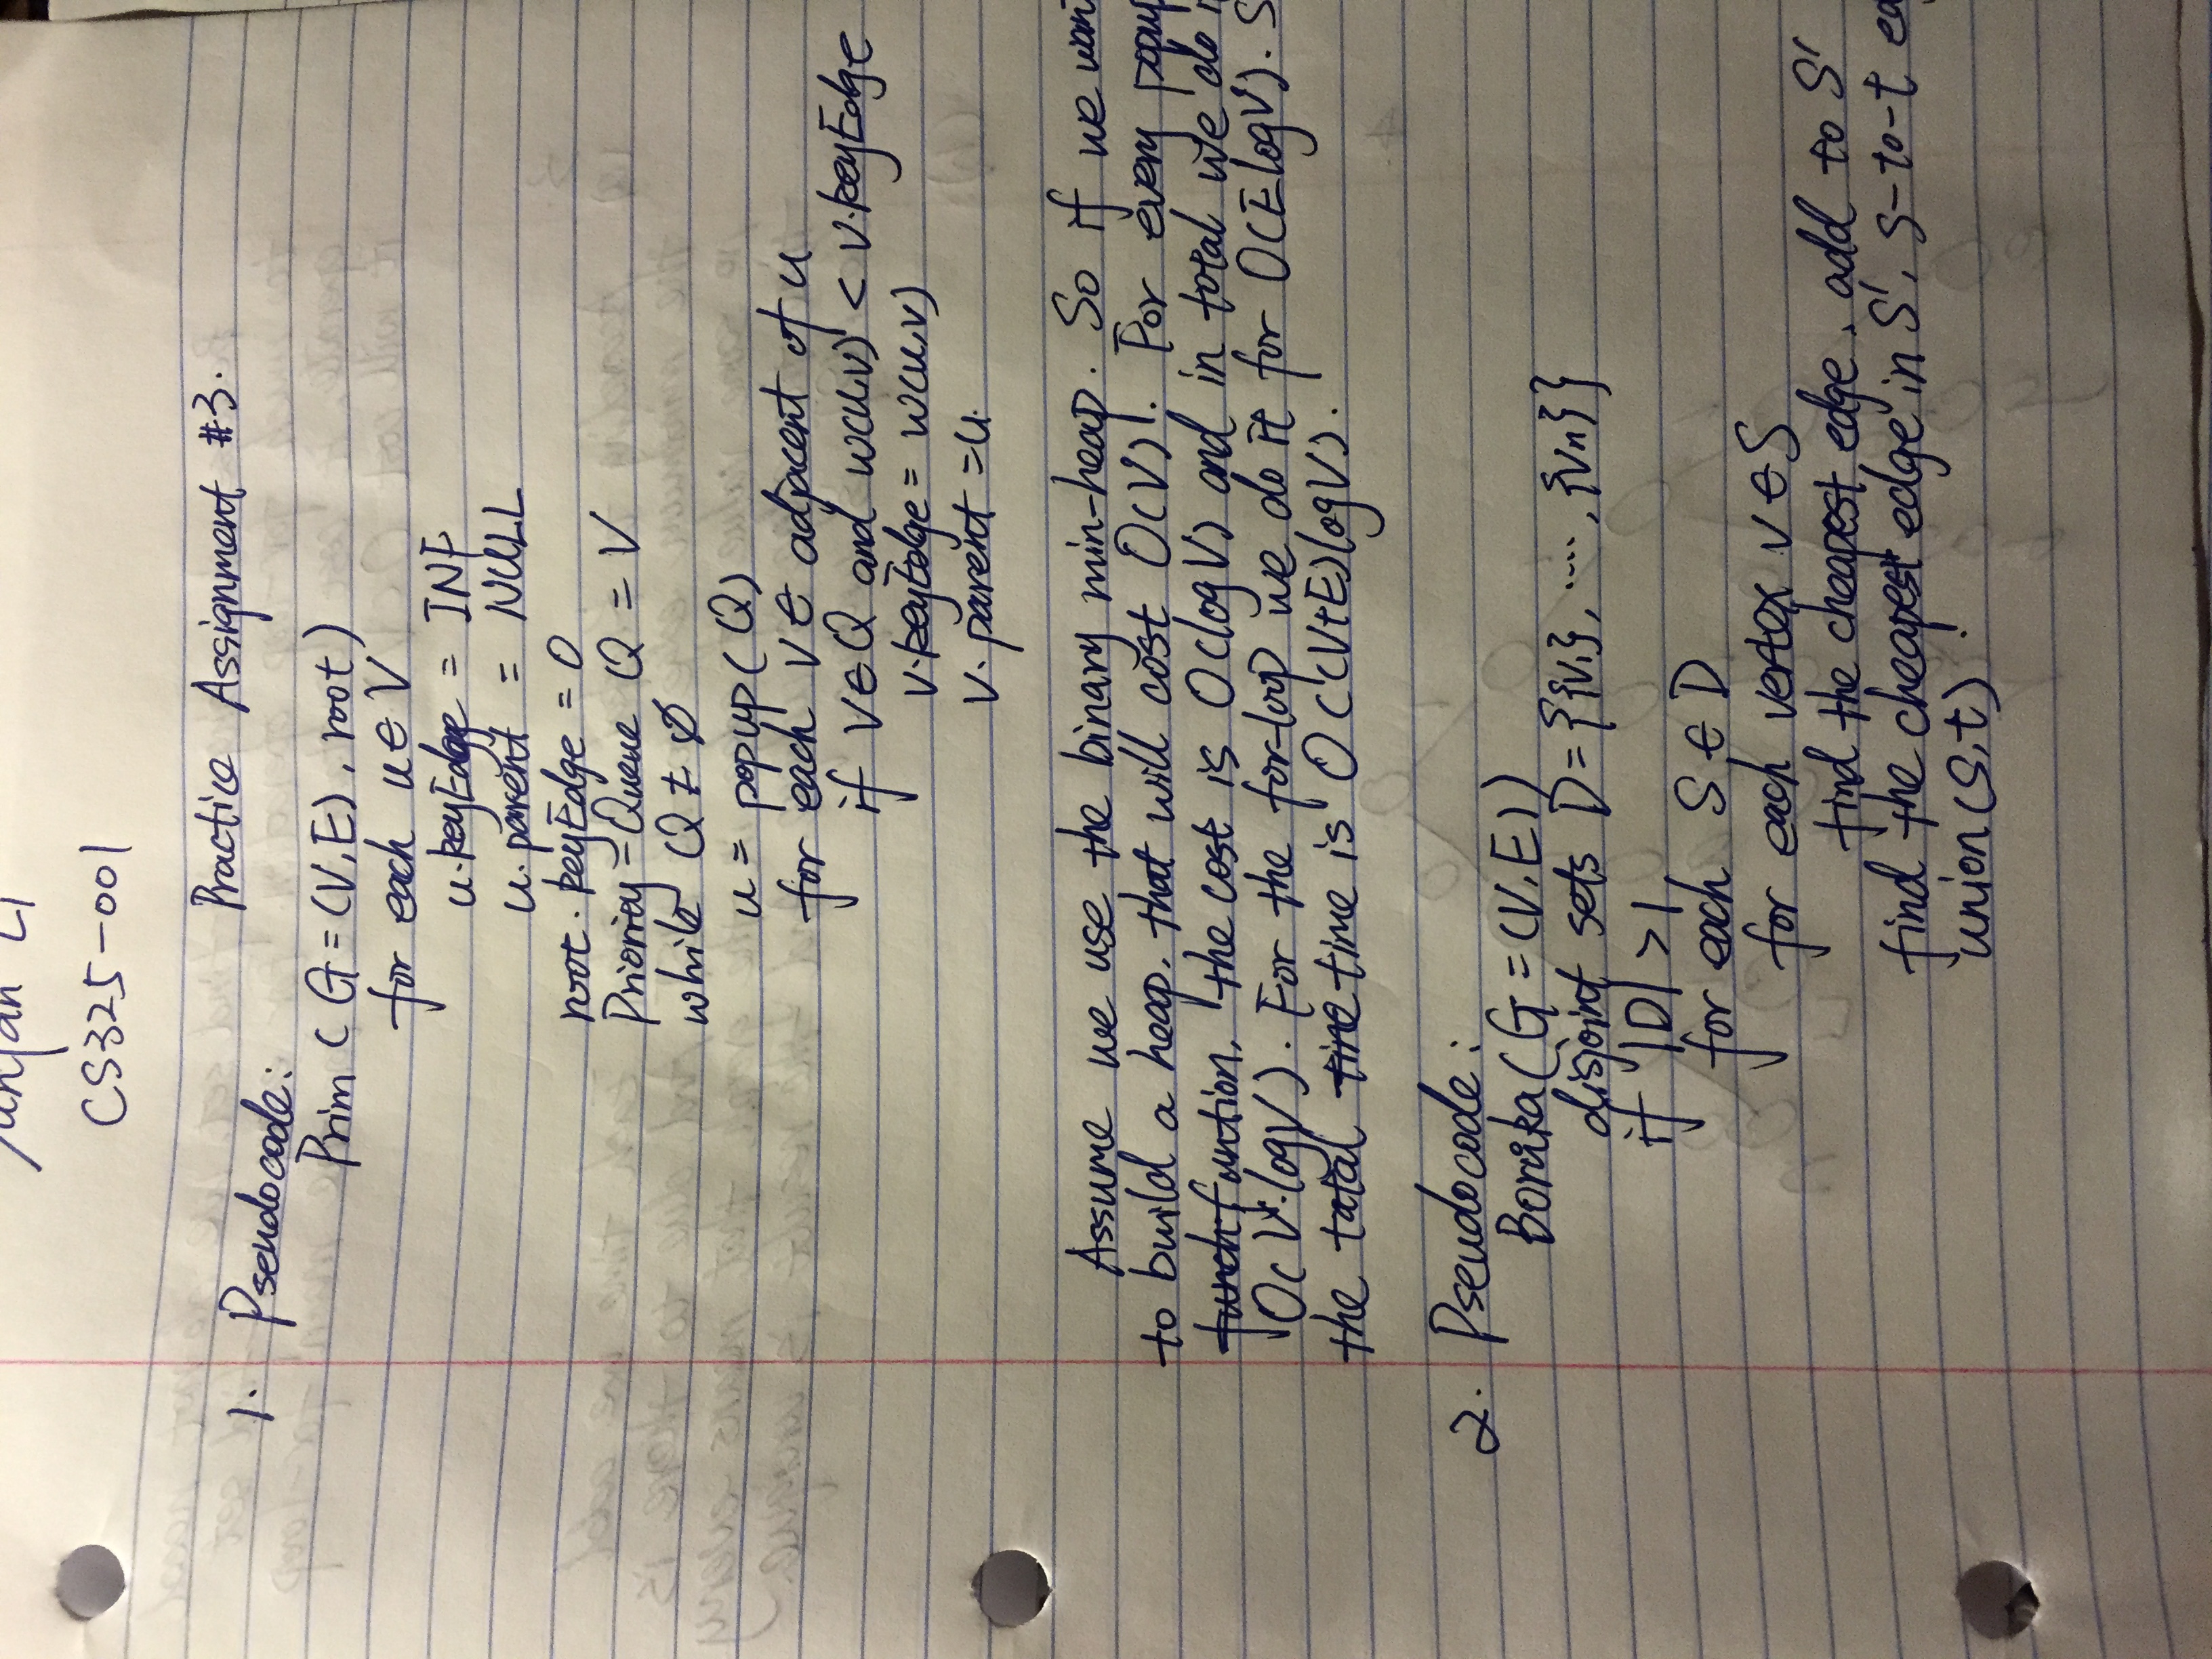 Li
CS325-001
Practice Assignment #3.
1. Pseudocode:
Prim ( G = (V, E), root )
for each u ∈ V
u.keyEdge = INF
u.parent = NULL
root.keyEdge = 0
Priority-Queue Q = V
while Q ≠ ∅
u = popup(Q)
for each v ∈ adjacent of u
if v ∈ Q and w(u,v) < v.keyEdge
v.keyEdge = w(u,v)
v.parent = u.
Assume we use the binary min-heap. So if we wan
to build a heap, that will cost O(V). For every popup
funtion, the cost is O(logV) and in total we do i
O(V·logV). For the for-loop we do it for O(ElogV). S
the tatal time is O((V+E)logV).
2. Pseudocode:
Boruvka(G = (V, E))
disjoint sets D = {{v1}, ...., {vn}}
if |D| > 1
for each S ∈ D
for each vertex v ∈ S
find the cheapest edge, add to S'
find the cheapest edge in S', s-to-t ed
union(s,t)